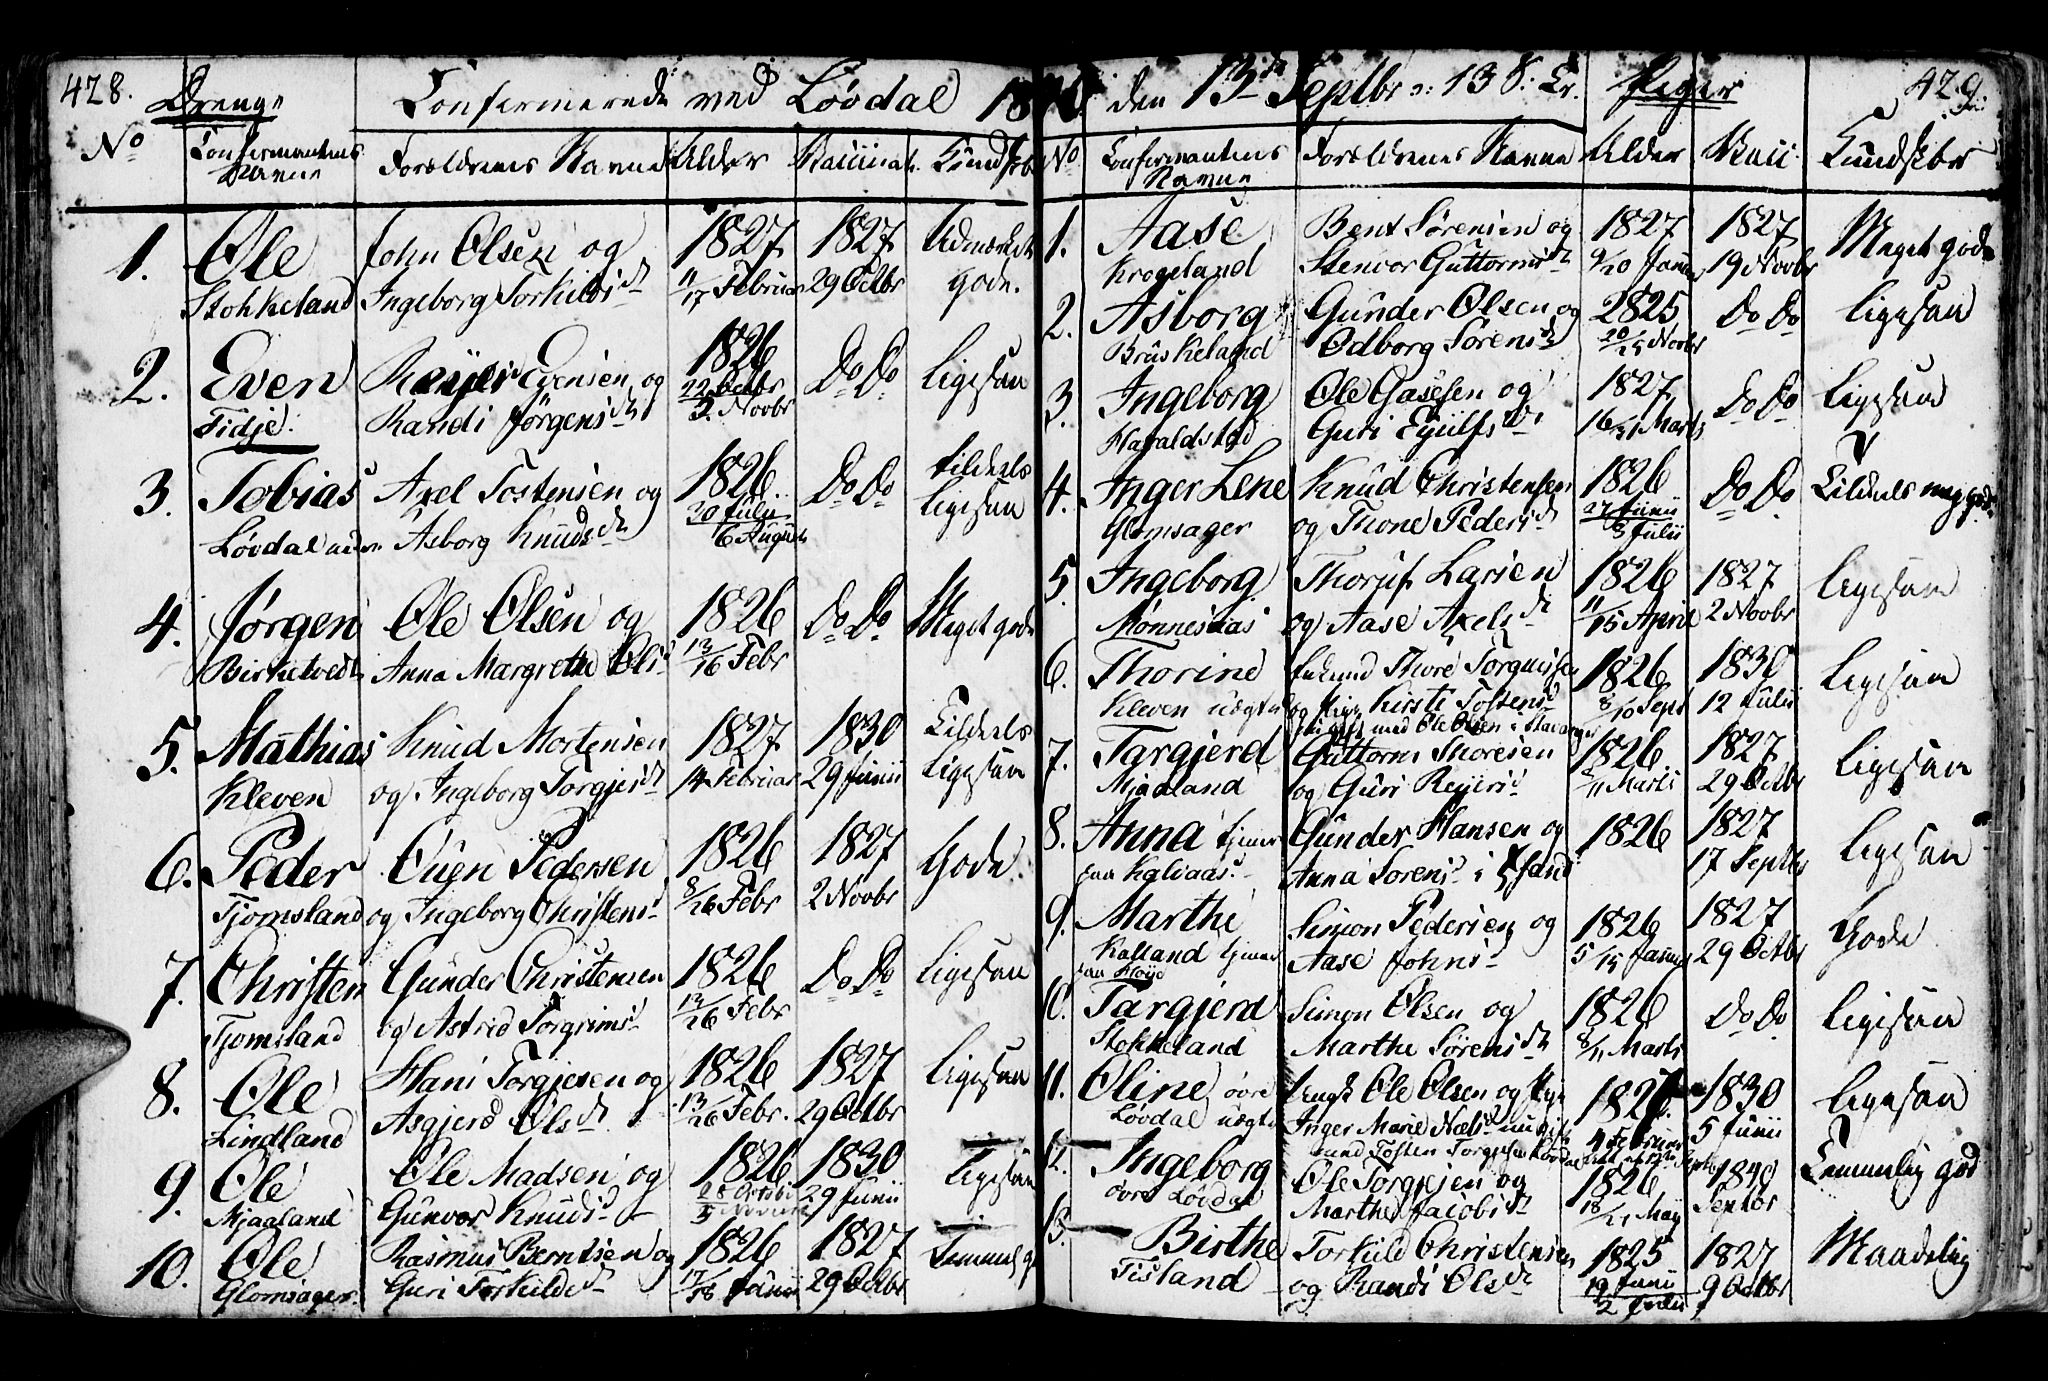 428.
Drenge
Confirmerede ved Løvdal 18
No
Confirmantens Navne
Forældrenes Navne
Alder
Vaccinat.
Kundskb
1. Ole
Stokkeland
John Olsen og
Ingeborg Torkildsd
1827
11/17 Februar
1827
29 Octbr
Udmærkede
gode.
2. Even
Tidje.
Reyer Evensen og
Randi Jørgensd
1826
22 Octbr
5 Novbr
Do Do
ligesaa
3. Tobias
Løvdal
Axel Tostensen og
Asborg Knudsd
1826
30 Julii
6 August
Do Do
ligesaa
4. Jørgen
Birketvedt
Ole Olsen og
Anna Margrethe Ols
1826
13/16 Febr
Do Do
Meget gode
5. Mathias
Kleven
Knud Mortensen
og Ingeborg Torgjersd
1827
14 Februar
1830
29 Junii
ligesaa
6. Peder
Tjomsland
Ouen Pedersen
og Ingeborg Christens
1826
8/26 Febr
1827
2 Novbr
Gode.
7. Christen
Tjomsland
Gunder Christensen
og Astrid Torgrims
1826
13/26 Febr
Do Do
ligesaa
8. Ole
Lindland
Hans Torgjesen og
Asgjerd Olsd
1826
13/26 Febr.
1827
29 Octbr
ligesaa
9. Ole
Mjaaland
Ole Madsen og
Gunvor Knuds
1826
1830
29 Junii
ligesaa
10. Ole
Glomsager
Rasmus Berntsen og
Guri Torkildsd
1826
17/18 Junii
1827
29 Octbr
429.
den 13de Septbr
Piger
No
Confirmantens Navne
Forældrenes Navne
Alder
Vacc.
Kundskbr
1. Aase
Krogeland
Bent Sørensen og
Stenvor Guttormsd
1827
9/20 Januar
1827
19 Novbr
Meget gode
2. Asborg
Bruskeland
Gunder Olsen og
Odborg Sorensd
2825
20/25 Novbr
Do Do
ligesaa
3. Ingeborg
Haraldstad
Ole Gasesen og
Guri Egulfsd
1827
16/31 Marts
Do Do
ligesaa
4. Inger Lene
Glomsager
Knud Christensen
og Thone Pedersd
1826
27 Junii
3 Julii
Do Do
5. Ingeborg
Monnesnas
Thoruf Larsen
og Aase Axelsd
1826
11/15 April
1827
2 Novbr
ligesaa
6. Thorine
Kleven uægte
Thore Torguusen
og Pige Kirsti Tostensd
gift med Ole Olsen i Stavanger
1826
8/10 Sept
1830
12 Julii
ligesaa
7. Targjerd
Mjaaland
Guttorm Thoresen
og Guri Reyers
1826
5/11 Marts
1827
29 Octbr
ligesaa
8. Anna tjener
paa Kalvaas.
Gunder Hansen og
Anna Sorens i
1826
1827
17 Septbr
ligesaa
9. Marthe
Kalland tjener
paa Høye
Simon Pedersen og
Aase Johns
1826
5/15 Januar
1827
29 Octbr
Gode
10. Targjerd
Stokkeland
Simon Olsen og
Marthe Sørensd
1826
8/11 Marts
Do Do
ligesaa
11. Oline øvre
Løvdal uægte
Ungk Ole Olsen og Pige
Inger Marie Nælsd
1827.
4 Februar
1830
5 Junii
ligesaa
12. Ingeborg
øvre Løvdal
Ole Torgjesen og
Marthe Jacobsd
1826
18/21 May
1840
Septbr
Temmelig god
13. Birthe
Tisland
Torkild Christensen
og Randi Olsd
1825
19 Junii
2 Julii
1827
9 Octbr
Maadelig